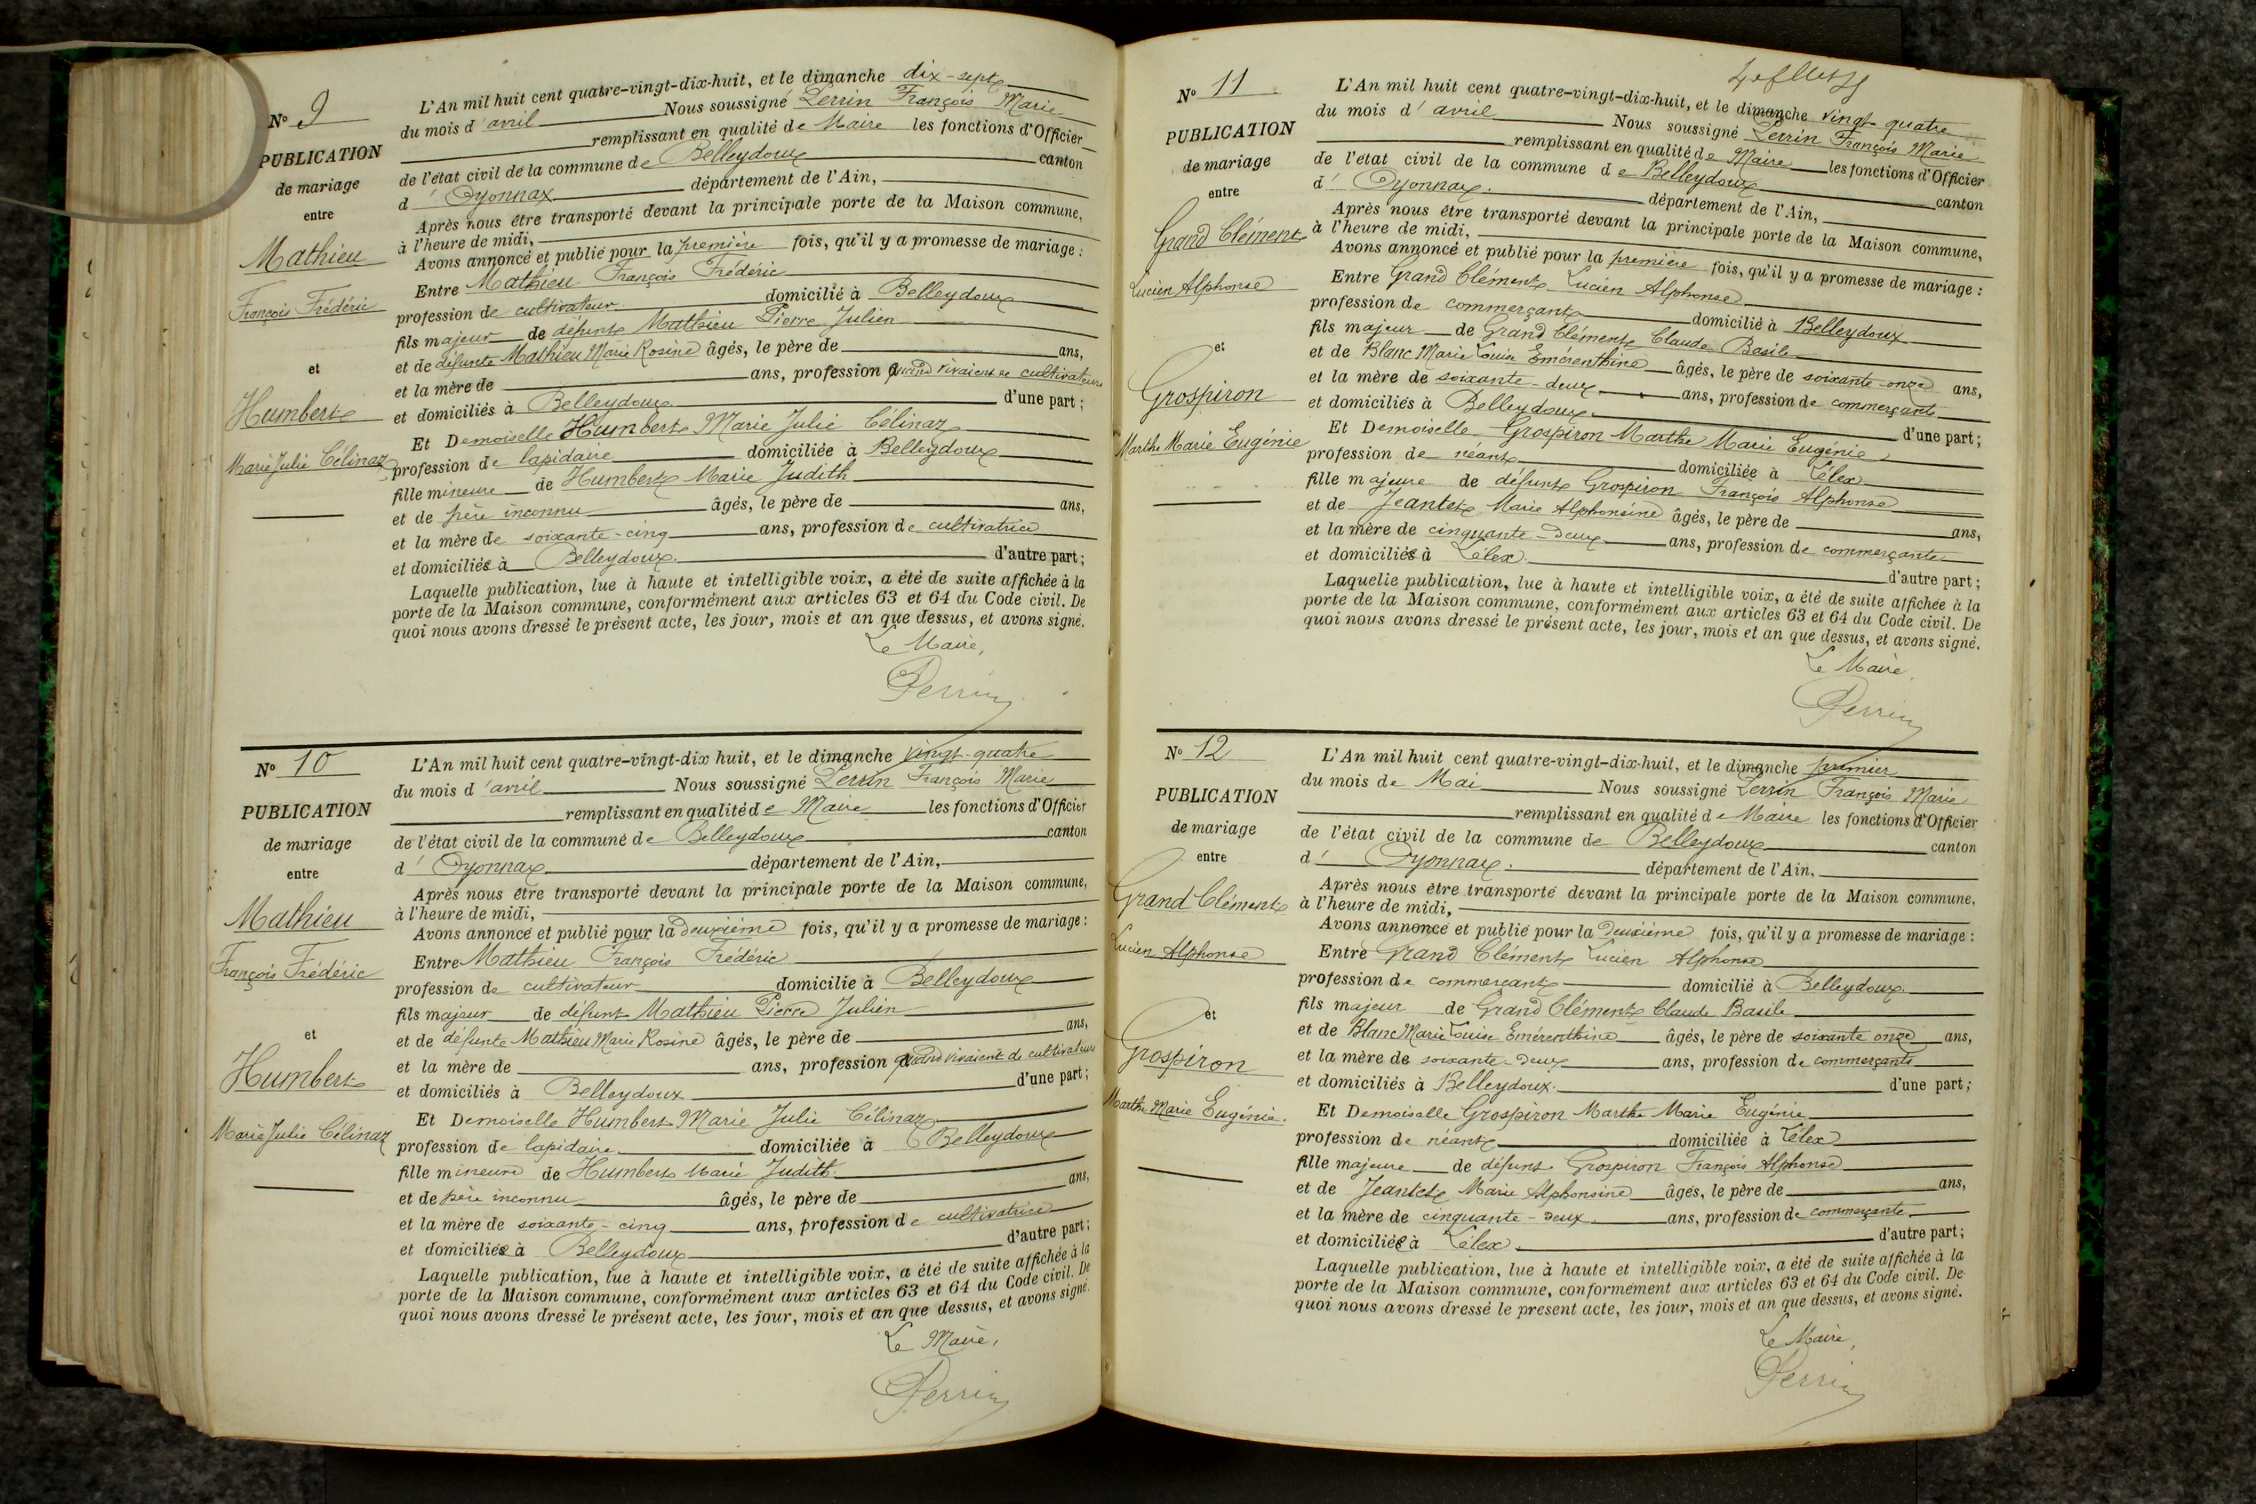 N° 9
PUBLICATION
de mariage
entre
Mathieu
François Frédéric
et
Humbert
Marie Julie Célinaz
L'An mil huit cent quatre-vingt-dix-huit, et le dimanche dix-sept
du mois d'avril Nous soussigné Perrin François Marie
remplissant en qualité de Maire les fonctions d'Officier
de l'état civil de la commune de Belleydoux canton
d'Oyonnax département de l'Ain,
Après nous être transporté devant la principale porte de la Maison commune,
à l'heure de midi,
Avons annoncé et publié pour la première fois, qu'il y a promesse de mariage :
Entre Mathieu François Frédéric
profession de cultivateur domicilié à Belleydoux
fils majeur de défunt Mathieu Pierre Julien
et de défunte Mathieu Marie Rosine âgés, le père de ans,
et la mère de ans, profession quand vivaient de cultivateurs
et domiciliés à Belleydoux d'une part ;
Et Demoiselle Humbert Marie Julie Célinaz
profession de lapidaire domiciliée à Belleydoux
fille mineure de Humbert Marie Judith
et de père inconnu âgés, le père de ans,
et la mère de soixante-cinq ans, profession de cultivatrice
et domiciliés à Belleydoux. d'autre part ;
Laquelle publication, lue à haute et intelligible voix, a été de suite affichée à la
porte de la Maison commune, conformément aux articles 63 et 64 du Code civil. De
quoi nous avons dressé le présent acte, les jour, mois et an que dessus, et avons signé.
Le Maire,
Perrin
N° 10
PUBLICATION
de mariage
entre
Mathieu
François Frédéric
et
Humbert
Marie Julie Célinaz
L'An mil huit cent quatre-vingt-dix huit, et le dimanche vingt-quatre
du mois d'avril Nous soussigné Perrin François Marie
remplissant en qualité de Maire les fonctions d'Officier
de l'état civil de la commune de Belleydoux canton
d'Oyonnax département de l'Ain,
Après nous être transporté devant la principale porte de la Maison commune,
à l'heure de midi,
Avons annoncé et publié pour la deuxième fois, qu'il y a promesse de mariage :
Entre Mathieu François Frédéric
profession de cultivateur domicilié à Belleydoux
fils majeur de défunt Mathieu Pierre Julien
et de défunte Mathieu Marie Rosine âgés, le père de ans,
et la mère de ans, profession quand vivaient de cultivateurs
et domiciliés à Belleydoux d'une part ;
Et Demoiselle Humbert Marie Julie Célinaz
profession de lapidaire domiciliée à Belleydoux
fille mineure de Humbert Marie Judith
et de père inconnu âgés, le père de ans,
et la mère de soixante-cinq ans, profession de cultivatrice
et domiciliés à Belleydoux d'autre part ;
Laquelle publication, lue à haute et intelligible voix, a été de suite affichée à la
porte de la Maison commune, conformément aux articles 63 et 64 du Code civil. De
quoi nous avons dressé le présent acte, les jour, mois et an que dessus, et avons signé.
Le Maire,
Perrin
N° 11
PUBLICATION
de mariage
entre
Grand Clément
Lucien Alphonse
et
Grospiron
Marthe Marie Eugénie
L'An mil huit cent quatre-vingt-dix-huit, et le dimanche vingt quatre
du mois d'avril Nous soussigné Perrin François Marie
remplissant en qualité de Maire les fonctions d'Officier
de l'etat civil de la commune de Belleydoux canton
d'Oyonnax. département de l'Ain,
Après nous être transporté devant la principale porte de la Maison commune,
à l'heure de midi,
Avons annoncé et publié pour la première fois, qu'il y a promesse de mariage :
Entre Grand Clément Lucien Alphonse
profession de commerçant domicilié à Belleydoux
fils majeur de Grand Clément Claude Basile
et de Blanc Marie Louise Emérenthine âgés, le père de soixante-onze ans,
et la mère de soixante-deux ans, profession de commerçants
et domiciliés à Belleydoux. d'une part ;
Et Demoiselle Grospiron Marthe Marie Eugénie
profession de néant domiciliée à Lélex
fille majeure de défunt Grospiron François Alphonse
et de Jeantet Marie Alphonsine âgés, le père de ans,
et la mère de cinquante-deux ans, profession de commerçante
et domiciliés à Lélex. d'autre part ;
Laquelle publication, lue à haute et intelligible voix, a été de suite affichée à la
porte de la Maison commune, conformément aux articles 63 et 64 du Code civil. De
quoi nous avons dressé le présent acte, les jour, mois et an que dessus, et avons signé.
Le Maire,
Perrin
N° 12
PUBLICATION
de mariage
entre
Grand-Clément
Lucien Alphonse
et
Grospiron
Marthe Marie Eugénie.
L'An mil huit cent quatre-vingt-dix-huit, et le dimanche premier
du mois de Mai Nous soussigné Perrin François Marie
remplissant en qualité de Maire les fonctions d'Officier
de l'état civil de la commune de Belleydoux canton
d'Oyonnax. département de l'Ain,
Après nous être transporté devant la principale porte de la Maison commune,
à l'heure de midi,
Avons annoncé et publié pour la deuxième fois, qu'il y a promesse de mariage :
Entre Grand Clément Lucien Alphonse
profession de commerçant domicilié à Belleydoux.
fils majeur de Grand Clément Claude Basile
et de Blanc Marie Louise Emérenthine âgés, le père de soixante onze ans,
et la mère de soixante-deux ans, profession de commerçants
et domiciliés à Belleydoux. d'une part ;
Et Demoiselle Grospiron Marthe Marie Eugénie
profession de néant domiciliée à Lélex
fille majeure de défunt Grospiron François Alphonse
et de Jeantet Marie Alphonsine âgés, le père de ans,
et la mère de cinquante-deux ans, profession de commerçante
et domiciliés à Lélex. d'autre part ;
Laquelle publication, lue à haute et intelligible voix, a été de suite affichée à la
porte de la Maison commune, conformément aux articles 63 et 64 du Code civil. De
quoi nous avons dressé le present acte, les jour, mois et an que dessus, et avons signé.
Le Maire,
Perrin